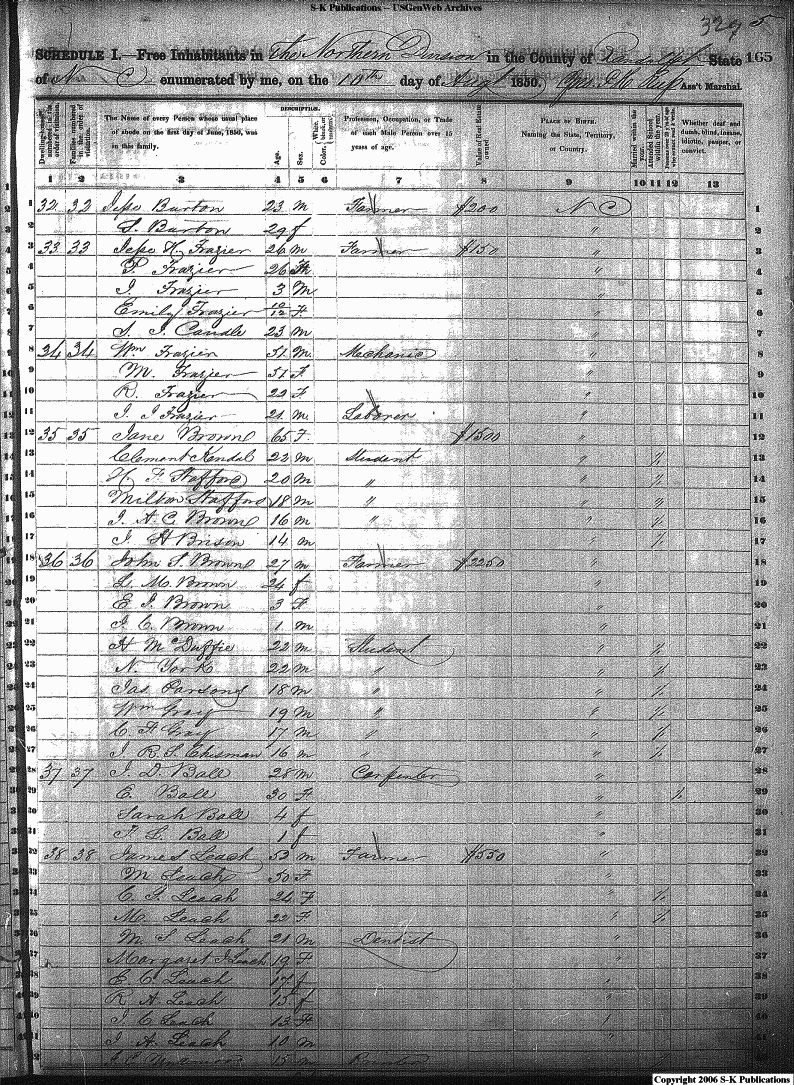 S-K Publications -- USGenWeb Archives
329 5
SCHEDULE I.—Free Inhabitants in The Northern Division in the County of Randolph State 165
of N C enumerated by me, on the 10th day of Augt 1850. Ass't Marshal.
DESCRIPTION.
Dwelling-houses numbered in the order of visitation.
Families numbered in the order of visitation.
The Name of every Person whose usual place of abode on the first day of June, 1850, was in this family.
Age.
Sex.
Color, White, black, or mulatto.
Profession, Occupation, or Trade of each Male Person over 15 years of age.
Value of Real Estate owned
PLACE OF BIRTH. Naming the State, Territory, or Country.
Married within the year.
Attended School within the year.
Whether deaf and dumb, blind, insane, idiotic, pauper, or convict.
1 2 3 4 5 6 7 8 9 10 11 12 13
1 32 32 Barton 23 m Farmer $200 N C 1
2 S. Barton 29 f " 2
3 33 33 H. Frazier 26 m Farmer $150 " 3
4 P. Frazier 26 F " 4
5 I. Frazier 3 m " 5
6 Emily Frazier F " 6
7 Caudle 23 m " 7
8 34 34 Wm Frazier 51 m Mechanic " 8
9 M. Frazier 51 F " 9
10 R. Frazier 22 F " 10
11 J. J Frazier 21 m Laborer " 11
12 35 35 Jane Brown 65 F $1500 " 12
13 Clemont Kendal 22 m Student " 13
14 H F Stafford 20 m " " 14
15 Milton Stafford 18 m " " 15
16 J. A. C. Brown 16 m " " 16
17 J. H Brison 14 m " 17
18 36 36 John S. Brown 27 m Farmer $2250 " 18
19 L. M. Brown 24 f " 19
20 E J. Brown 3 F " 20
21 J. C. Brown 1 m " 21
22 H McDuffie 22 m Student " 22
23 N York 22 m " " 23
24 Jas Parsons 18 m " " 24
25 Wm Gray 19 m " " 25
26 C. A Gray 17 m " " 26
27 J. R. S. Chisman 16 m " " 27
28 37 37 J. D. Ball 28 m Carpenter " 28
29 E Ball 30 F " 29
30 Sarah Ball 4 f " 30
31 L. Ball 1 f " 31
32 38 38 James Leach 53 m Farmer $550 " 32
33 M Leach 50 F " 33
34 C. S. Leach 24 F " 34
35 M. Leach 22 F " 35
36 M. S Leach 21 m Dentist " 36
37 Margaret J Leach 19 F " 37
38 E. C. Leach 17 f " 38
39 R. A. Leach 15 f " 39
40 J. C Leach 13 F " 40
41 J A. Leach 10 m " 41
15 m
Copyright 2006 S-K Publications